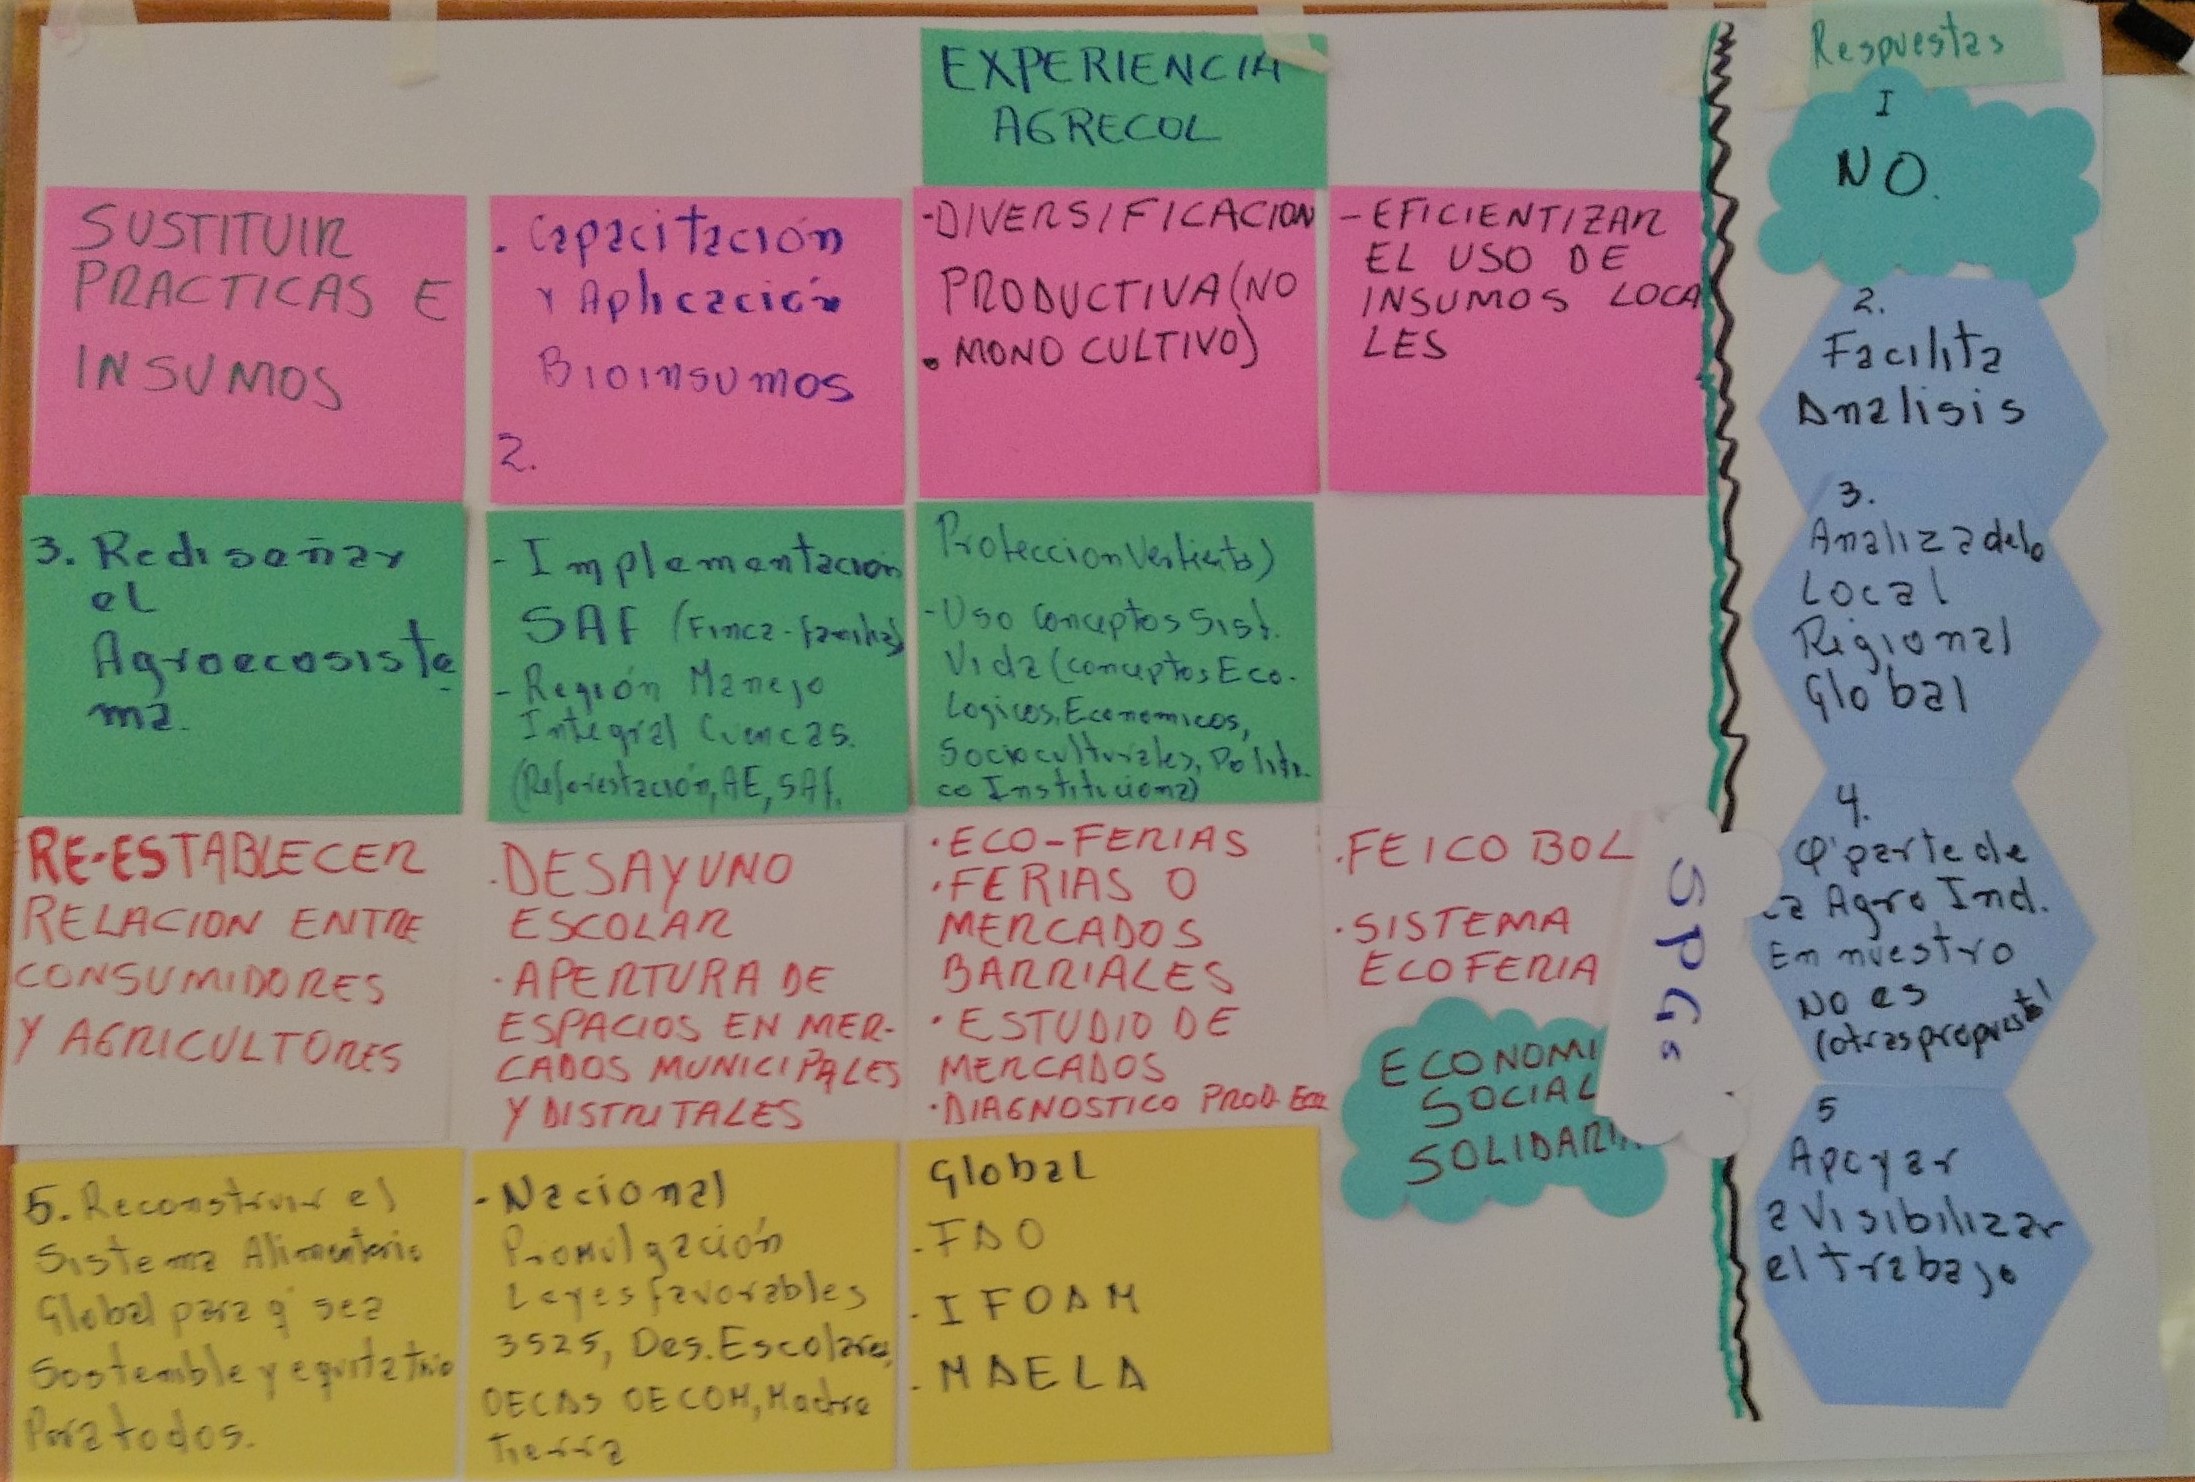 EXPERIENCIA
AGRECOL
SUSTITUIR
PRACTICAS E
INSUMOS
. Capacitación
y Aplicación
Bioinsumos
2.
-DIVERSIFICACION
PRODUCTIVA (NO
. MONO CULTIVO)
- EFICIENTIZAR
EL USO DE
INSUMOS LOCA
LES
3. Rediseñar
el
Agroecosiste
ma.
- Implementación
SAF (Finca-familia)
- Región Manejo
Integral Cuencas.
(Reforestación, AE, SAF,
Proteccion Vertients)
- Uso Conceptos Sist.
Vida (conceptos Eco-
Logicos, Economicos,
Socioculturales, Politi-
co Institucional)
RE-ESTABLECER
RELACION ENTRE
CONSUMIDORES
Y AGRICULTORES
. DESAYUNO
ESCOLAR
. APERTURA DE
ESPACIOS EN MER-
CADOS MUNICIPALES
Y DISTRITALES
. ECO-FERIAS
. FERIAS O
MERCADOS
BARRIALES
. ESTUDIO DE
MERCADOS
. DIAGNOSTICO PROD. ECO
. FEICOBOL
. SISTEMA
ECOFERIA
ECONOMI
SOCIAL
SOLIDARI
SPGs
5. Reconstruir el
Sistema Alimentario
Global para q' sea
Sostenible y equitativo
Para todos.
- Nacional
Promulgación
Leyes favorables
3525, Des. Escolares,
OECAS OECOM, Madre
Tierra
Global
. FAO
. IFOAM
. MAELA
Respuestas
I
NO.
2.
Facilita
Analisis
3.
Analiza delo
Local
Rigional
Global
4.
Q' parte de
La Agro Ind.
En nuestro
No es
(otras propuest)
5
Apoyar
a Visibilizar
el trabajo